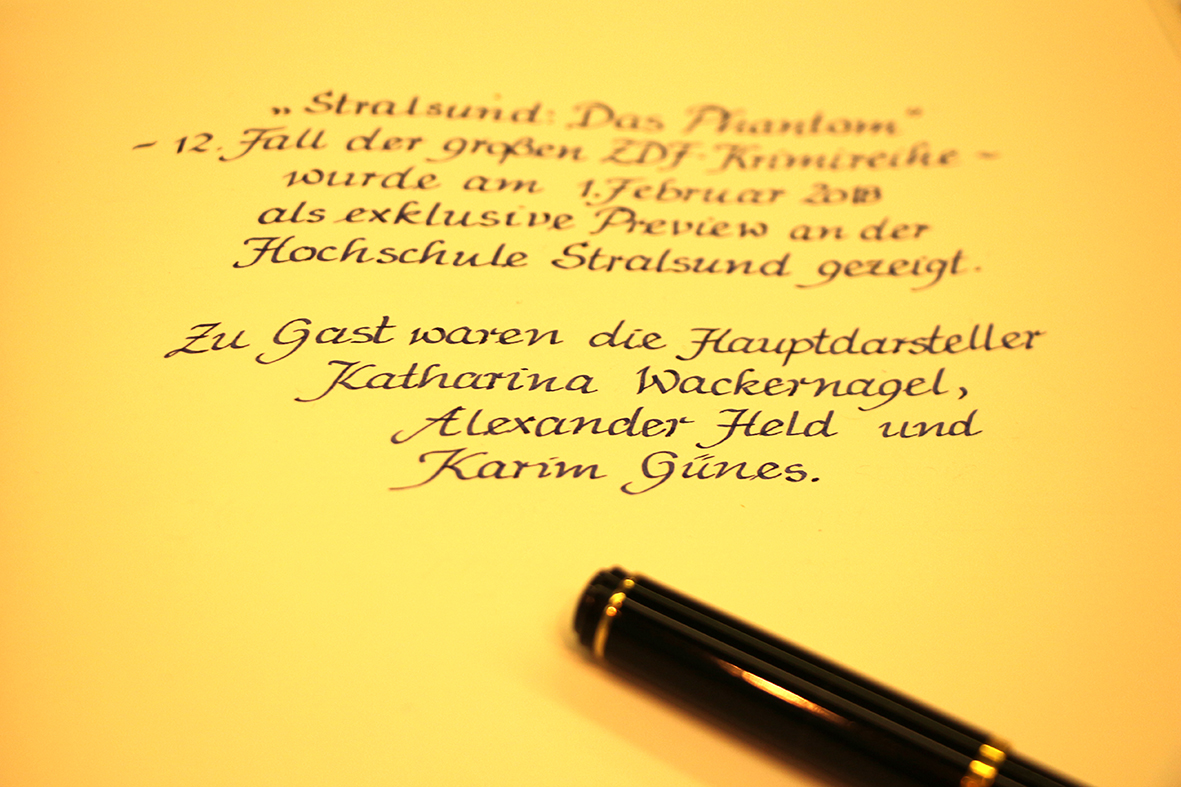 „Stralsund: Das Phantom"
- 12. Fall der großen ZDF-Krimireihe -
wurde am 1. Februar 2018
als exklusive Preview an der
Hochschule Stralsund gezeigt.
Zu Gast waren die Hauptdarsteller
Katharina Wackernagel,
Alexander Held und
Karim Günes.